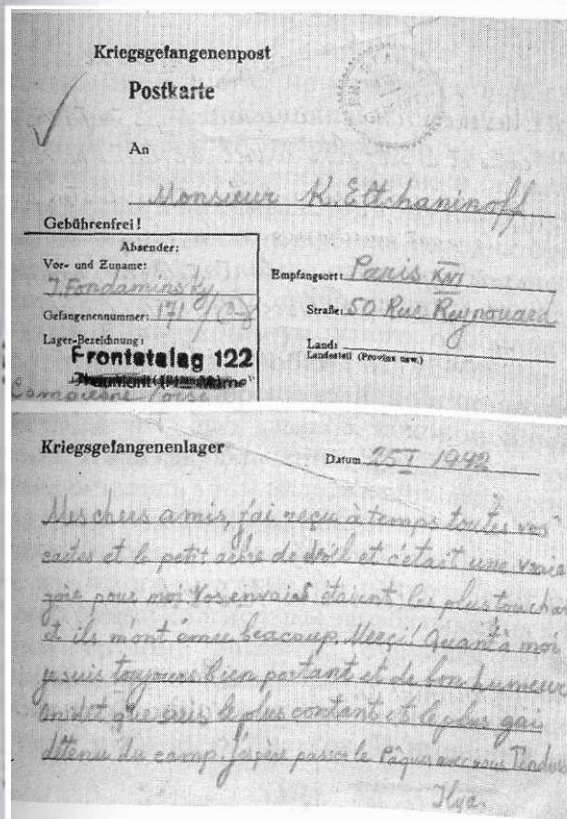 Kriegsgefangenenpost
Postkarte
An
Monsieur K. Eltchaninoff
Gebührenfrei!
Absender:
Vor- und Zuname:
J. Fondaminsky
Gefangenennummer: 171
Lager-Bezeichnung:
Frontstalag 122
Compiegne / Oise
Empfangsort: Paris XVI
Straße: 50 Rue Raynouard
Land:
Landesteil (Provinz usw.)
Kriegsgefangenenlager
Datum 25 I 1942
Mes chers amis, j'ai reçu à temps toutes vos
cartes et le petit et c'était une vraie
joie pour moi Vos envais étaient les plus toucha
et ils m'ont émue beaucoup. Merci! Quant à moi
je suis toujours bien portant et de bon humeur
on dit que suis le plus contant et le plus gai
détenu du camp. J'espère passer le Pâques avec vous
Ilya.